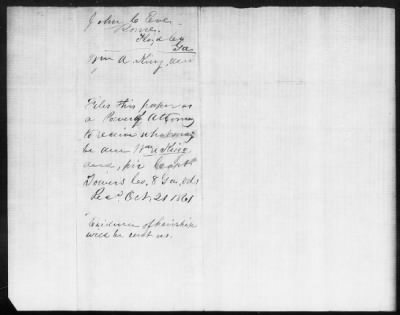 John C Eve
Rome,
Floyd Co
Ga
Wm A King, decd
Files this paper as
a Power of Attorney
to receive what may
be due Wm A King
decd, pvt Capt
Towers Co, 8 Ga, vols
Recd Oct 21 1861
Evidence of heirship
will be sent us.